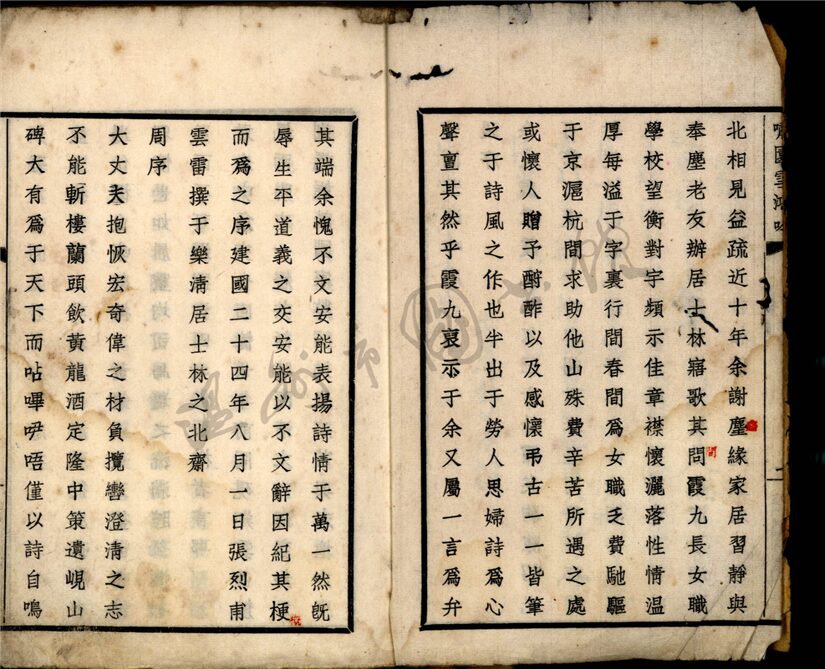 園雪鴻吟
北相見益疏近十年余謝麈緣家居習靜與
奉塵老友辦居士林寤歌其問霞九長女職
間
學校望衡對字頻示佳章襟懷灑落性情温
厚每溢于字裏行間春間爲女職乏費馳驅
于京滬杭間求助他山殊費辛苦所遇之處
或懷人贈予酧酢以及感懷弔古一一皆筆
之于詩風之作也半出于勞人思婦詩爲心
聲亶其然乎霞九裒示于余又屬一言爲弁
其端余愧不文安能表揚詩情于萬一然既
辱生平道義之交安能以不文辭因紀其梗
而爲之序建國二十四年八月一日張烈甫
雲雷撰于樂清居士林之北齋
周序
大丈夫抱恢宏奇偉之材負攬轡澄清之志
不能斬樓蘭頭飲黃龍酒定隆中策遺峴山
碑大有爲于天下而呫嗶咿唔僅以詩自鳴
温州市圖